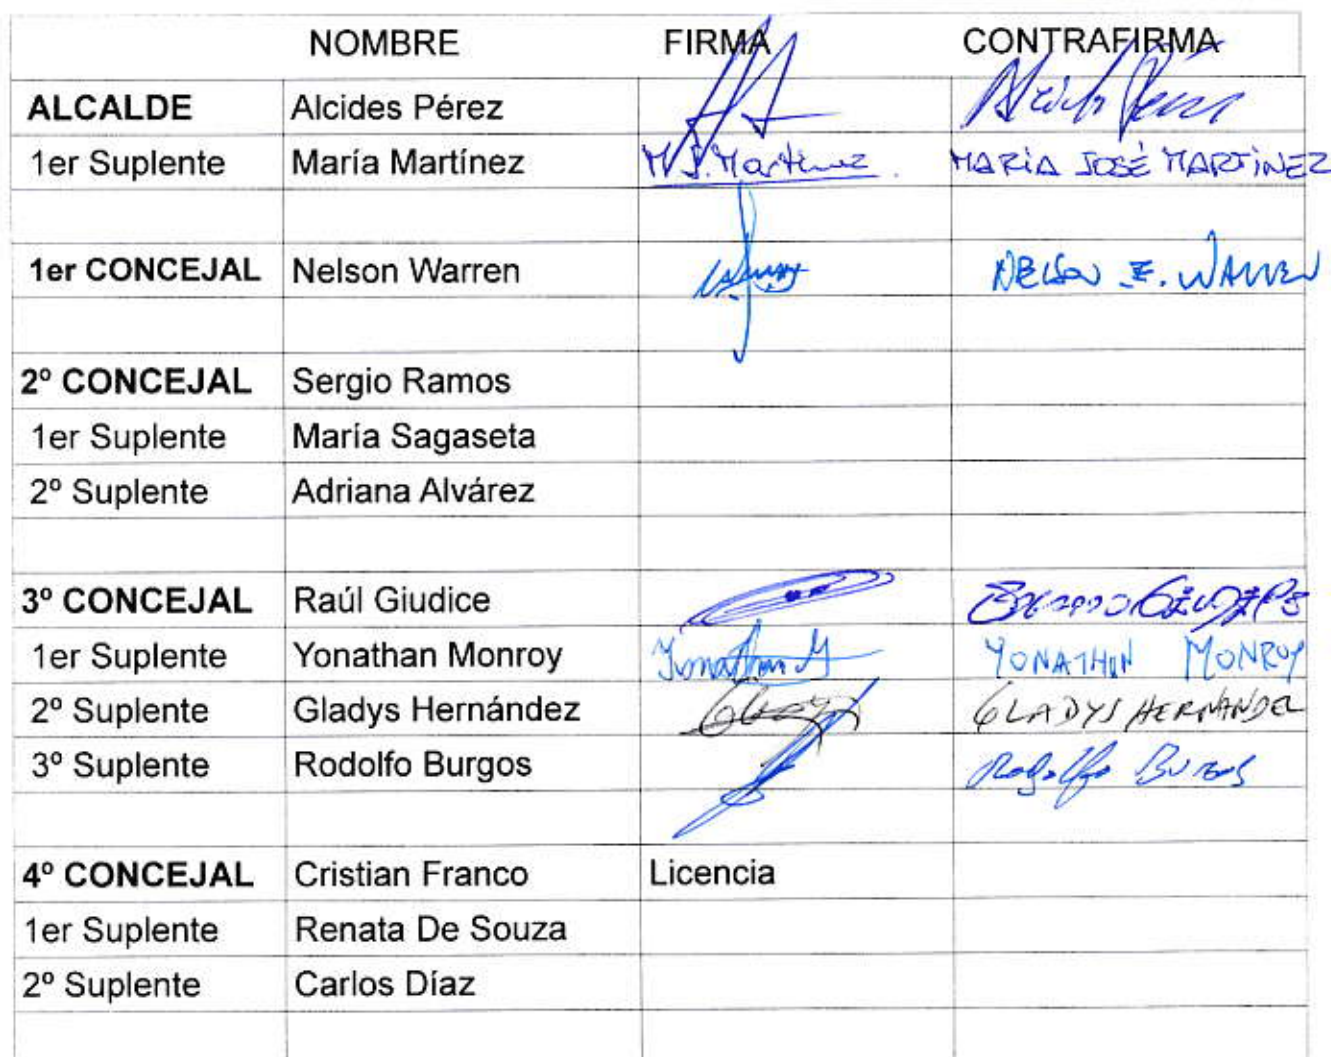 NOMBRE FIRMA CONTRAFIRMA
ALCALDE Alcides Pérez
1er Suplente María Martínez M J. Martinez. MARIA JOSÉ MARTINEZ
1er CONCEJAL Nelson Warren NELSON E. WARREN
2º CONCEJAL Sergio Ramos
1er Suplente María Sagaseta
2º Suplente Adriana Alvárez
3º CONCEJAL Raúl Giudice
1er Suplente Yonathan Monroy Yonathan M YONATHAN MONROY
2º Suplente Gladys Hernández GLADYS HERNANDEZ
3º Suplente Rodolfo Burgos Rodolfo Burgos
4º CONCEJAL Cristian Franco Licencia
1er Suplente Renata De Souza
2º Suplente Carlos Díaz